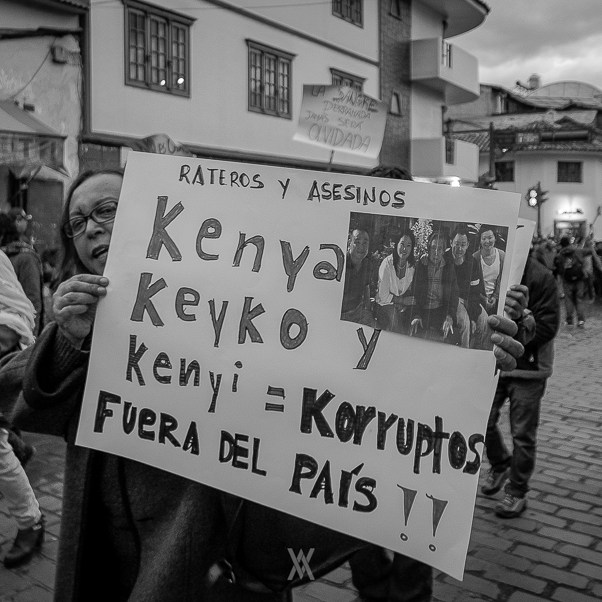 LA SANGRE
DERRAMADA
JAMÁS SERA
OLVIDADA
RATEROS Y ASESINOS
Kenya
Keyko y
Kenyi = Korruptos
FUERA DEL PAÍS !!